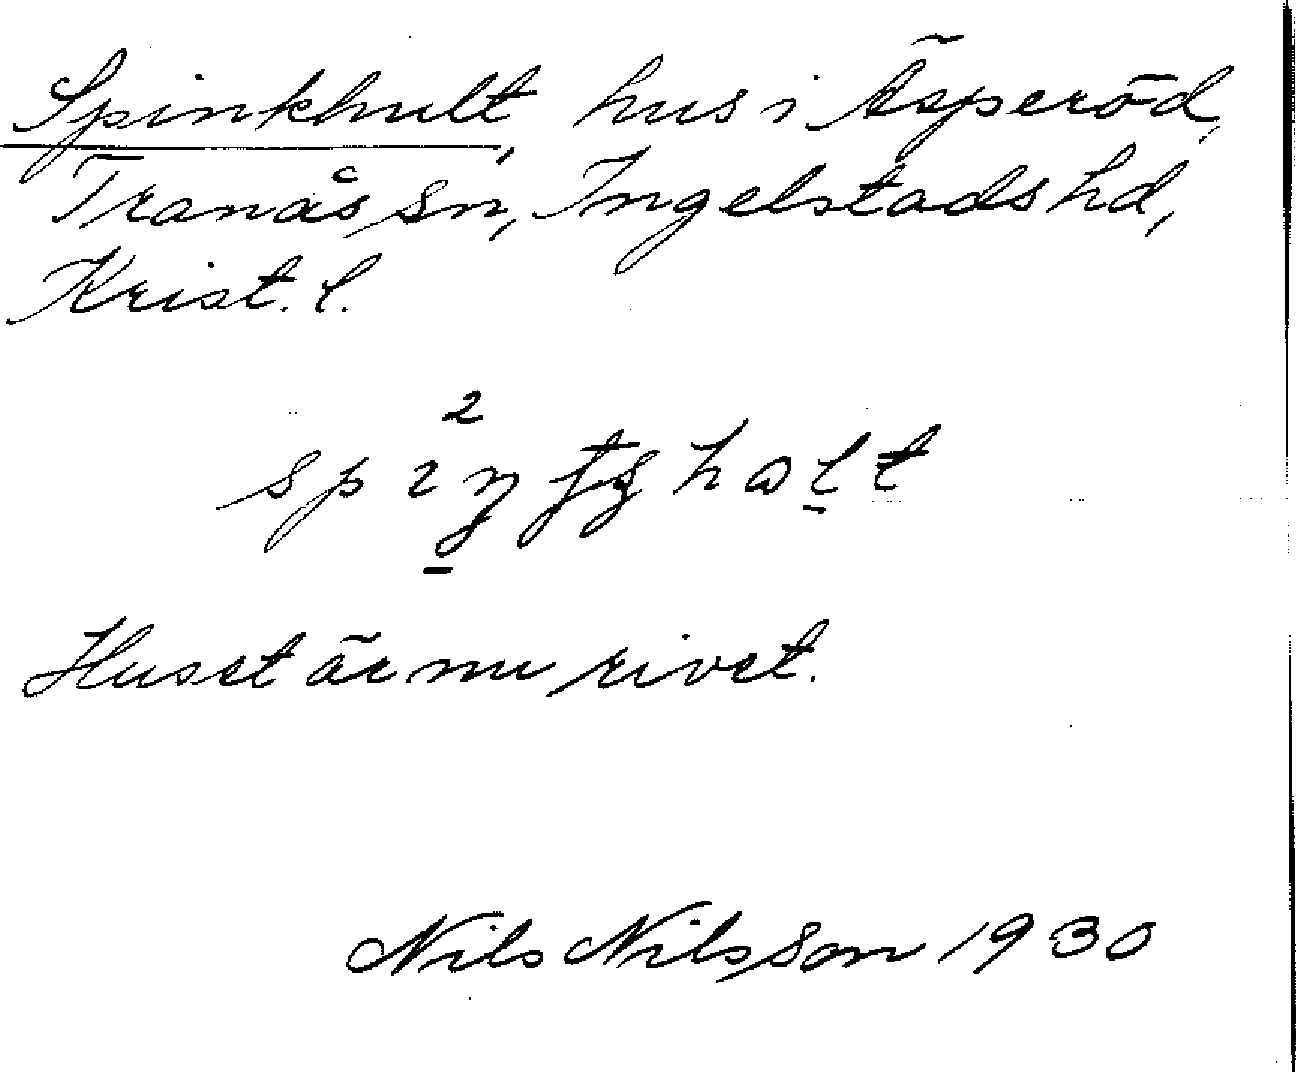 Spinkhult, hus i Äsperöd,
Tranås sn, Ingelstads hd,
Krist. l.
Huset är nu rivet.
Nils Nilsson 1930